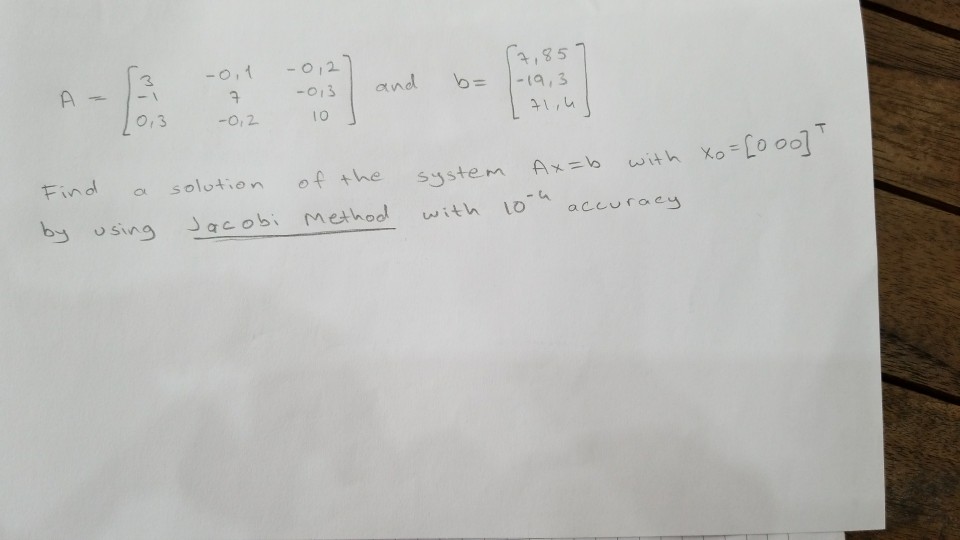 A = [3 -0,1 -0,2
-1 7 -0,3
0,3 -0,2 10] and b= [7,85
-19,3
71,4]
Find a solution of the system Ax=b with x₀=[0 0 0]ᵀ
by using Jacobi Method with 10⁻⁴ accuracy